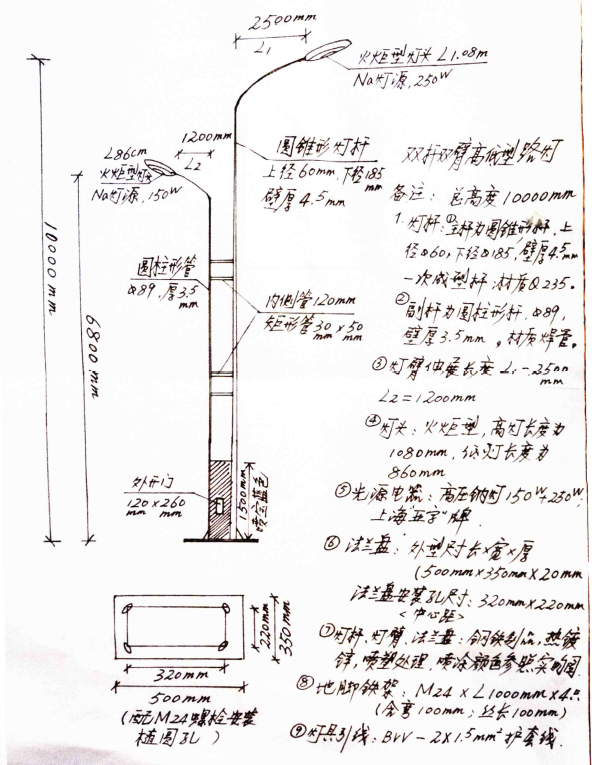 2500mm
L₁
火炬型灯头 L1.08m
Na灯源,250W
1200mm
L₂
L86cm
火炬型灯头
Na灯源,150W
圆锥形灯杆
上径60mm,下径185mm
壁厚4.5mm
10000mm
6800mm
圆柱形管
Φ89,厚3.5mm
内侧管120mm
矩形管30mm×50mm
外开门
120mm×260mm
1500mm
喷宝蓝色
220mm
350mm
320mm
500mm
(配M24螺栓安装
椭圆孔)
双杆双臂高低型路灯
备注:总高度10000mm
1.灯杆:①主杆为圆锥形杆,上
径Φ60,下径Φ185,壁厚4.5mm
一次成型杆:材质Q235。
②副杆为圆柱形杆,Φ89,
壁厚3.5mm。材质焊管。
③灯臂伸展长度 L₁-2500mm
L₂=1200mm
④灯头:火炬型,高灯长度为
1080mm,低灯长度为
860mm
⑤光源电器:高压钠灯150W+250W,
上海"亚字"牌.
⑥法兰盘:外型尺寸长×宽×厚
(500mm×350mm×20mm
法兰盘安装孔尺寸:320mm×220mm
<中心距>
⑦灯杆、灯臂、法兰盘:钢铁制品,热镀
锌,喷塑处理.喷涂颜色参照实的图
⑧地脚铁架:M24×L1000mm×4只
(含弯100mm;丝长100mm)
⑨灯具引线:BVV-2×1.5mm²护套线.